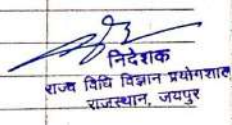 निदेशक
राज्य विधि विज्ञान प्रयोगशाला
राजस्थान, जयपुर